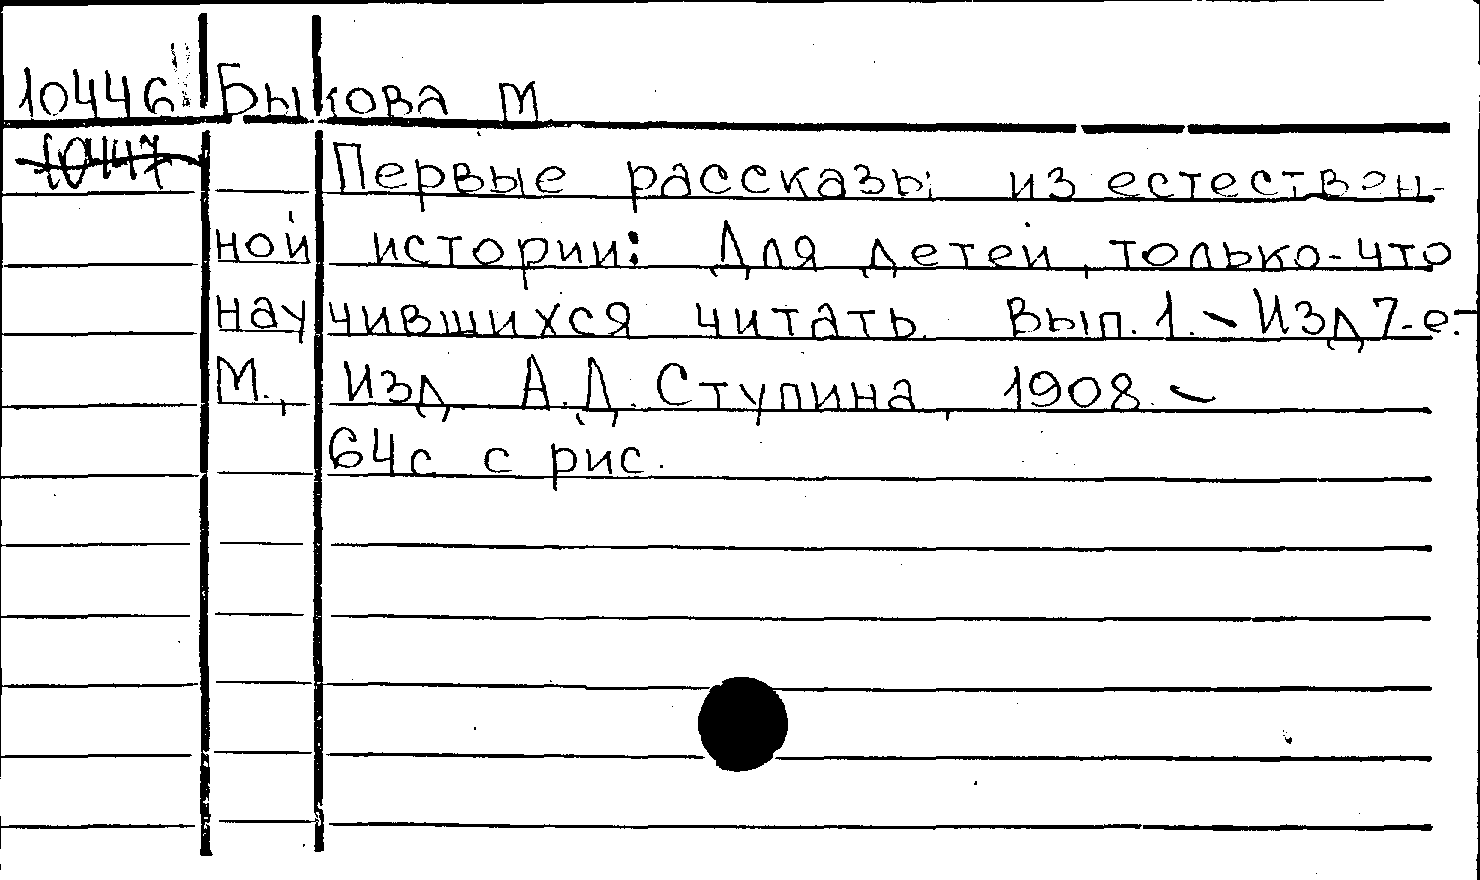 10446 Быкова М
10447 Первые рассказы из естествен-
ной истории: Для детей, только-что
научившихся читать. Вып. 1. - Изд 7-е.-
М., Изд. А.Д. Ступина, 1908. -
64с с рис.